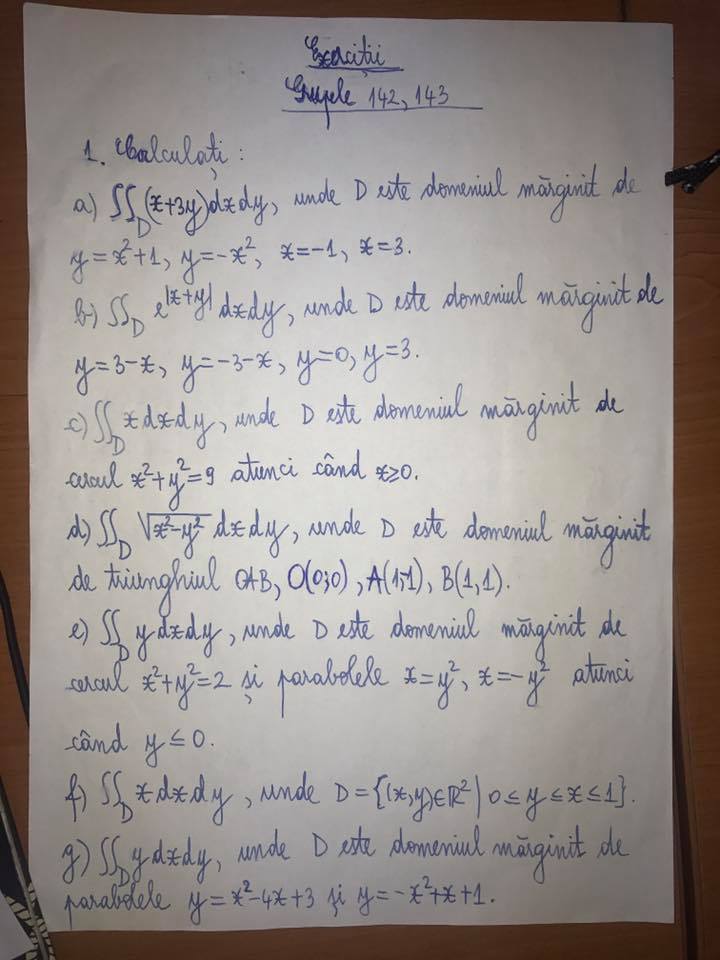 Exerciții
Grupele 142, 143
1. Calculați:
a) ∬_D (x+3y)dxdy, unde D este domeniul mărginit de
y=x²+1, y=-x², x=-1, x=3.
b) ∬_D e^|x+y| dxdy, unde D este domeniul mărginit de
y=3-x, y=-3-x, y=0, y=3.
c) ∬_D x dxdy, unde D este domeniul mărginit de
cercul x²+y²=9 atunci când x≥0.
d) ∬_D √(x²-y²) dxdy, unde D este domeniul mărginit
de triunghiul OAB, O(0;0), A(1;1), B(1,1).
e) ∬_D y dxdy, unde D este domeniul mărginit de
cercul x²+y²=2 și parabolele x=y², x=-y² atunci
când y≤0.
f) ∬_D x dxdy, unde D={(x,y)∈ℝ² | 0≤y≤x≤1}.
g) ∬_D y dxdy, unde D este domeniul mărginit de
parabolele y=x²-4x+3 și y=-x²+x+1.